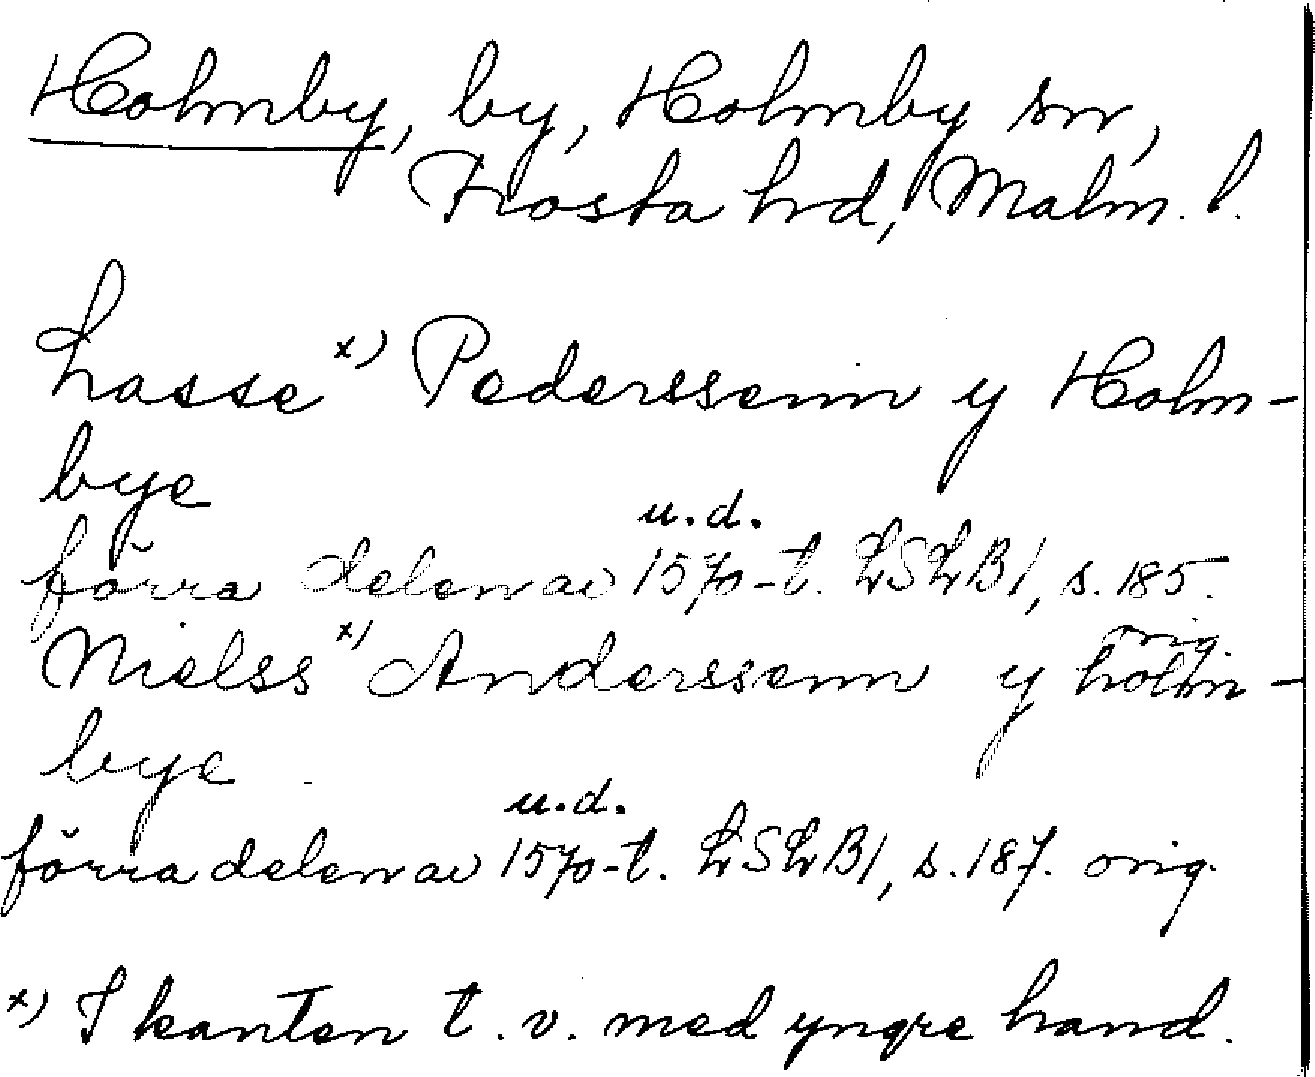 Holmby, by, Holmby sn,
Frosta hrd, Malm. l.
Lasse x) Pederssenn y Holm-
bye
u.d.
förra delen av 1570-t. LSLB1, s. 185.
orig.
Nielss x) Anderssenn y holm-
bye
u.d.
förra delen av 1570-t. LSLB1, s. 187. orig.
x) I kanten t.v. med yngre hand.